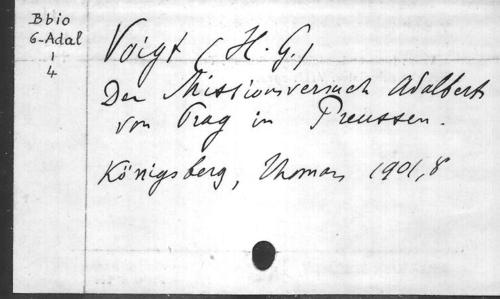 Bbio
6-Adal
1
4
Voigt (H. G.)
Der Missionsversuch Adalberts
von Prag in Preussen.
Königsberg, Thomas, 1901, 8